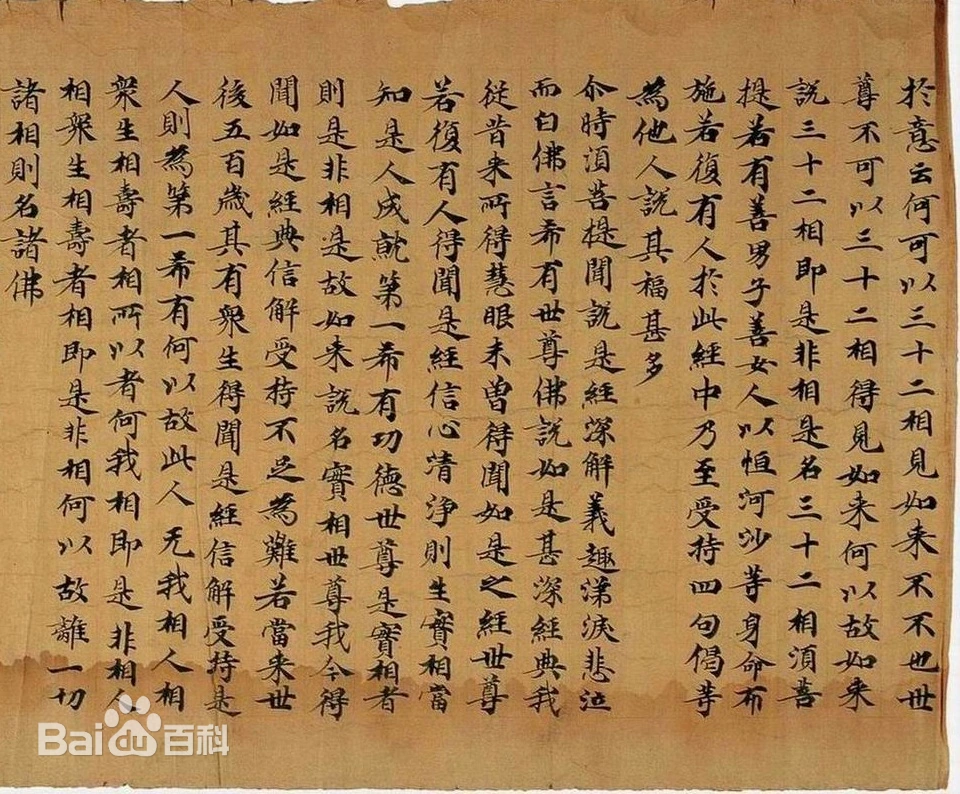 於意云何可以三十二相見如来不不也世
尊不可以三十二相得見如来何以故如来
說三十二相即是非相是名三十二相湏菩
提若有善男子善女人以恒河沙等身命布
施若復有人於此經中乃至受持四句偈等
為他人說其福甚多
尒時湏菩提聞說是經深解義趣涕淚悲泣
而白佛言希有世尊佛說如是甚深經典我
従昔来所得慧眼未曽得聞如是之經世尊
若復有人得聞是經信心清淨則生實相當
知是人成就第一希有功德世尊是實相者
則是非相是故如来說名實相世尊我今得
聞如是經典信解受持不足為難若當来世
後五百歲其有衆生得聞是經信解受持是
人則為第一希有何以故此人无我相人相
衆生相壽者相所以者何我相即是非相人
相衆生相壽者相即是非相何以故離一切
諸相則名諸佛
Baidu百科